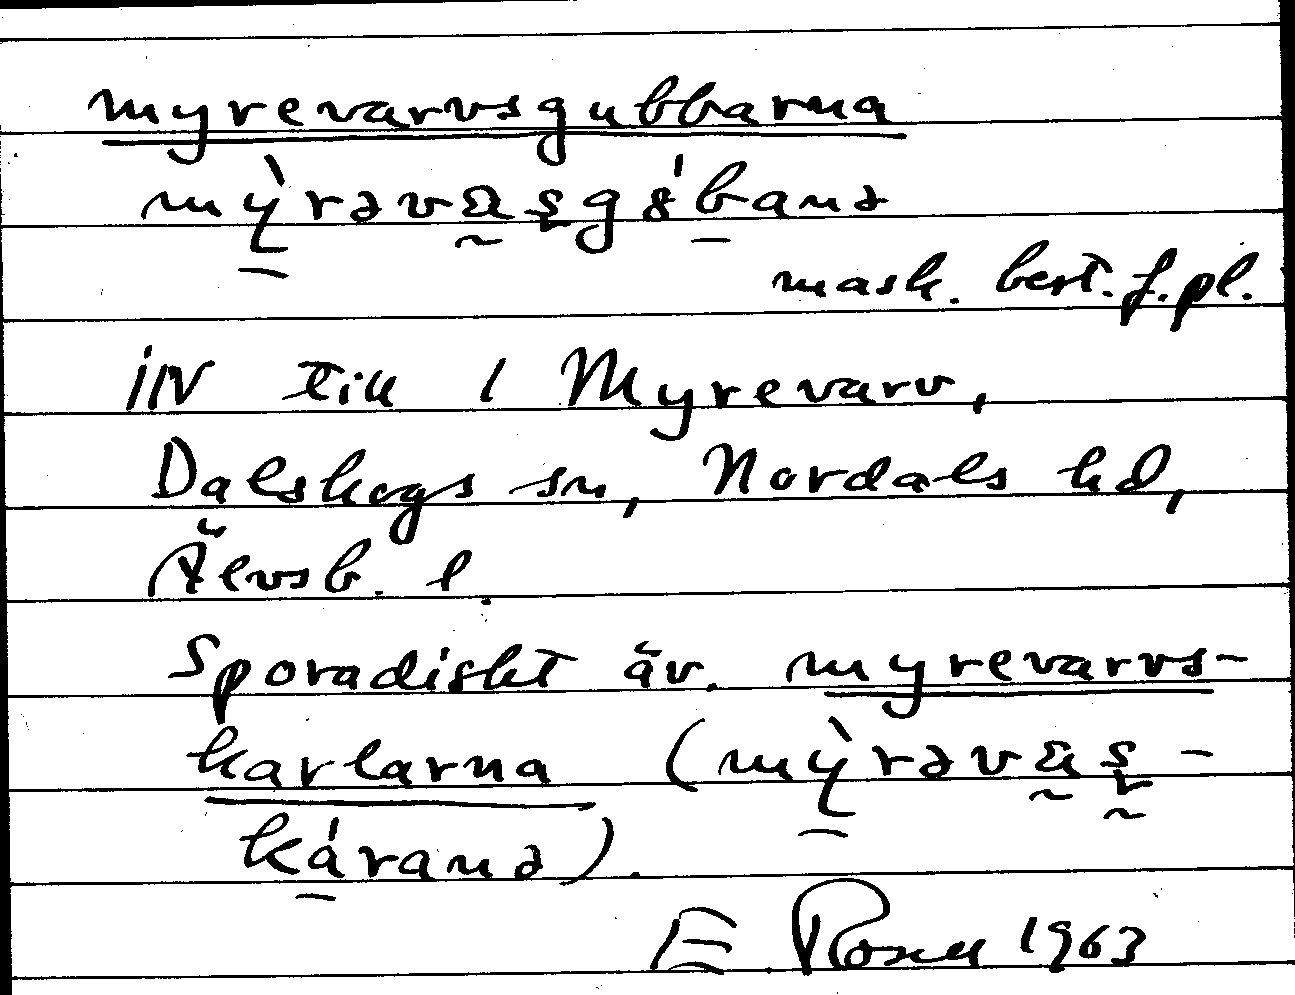 myrevarvsgubbarna
mỳrəvɑşgȣ́banə
mask. best. f. pl.
inv till 1 Myrevarv,
Dalskogs sn, Nordals hd,
Älvsb. l.
Sporadiskt äv. myrevarvs-
karlarna (mỳrəvɑş-
káranə).
E Rosell 1963